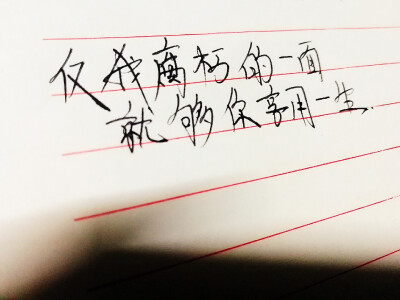 仅我腐朽的一面
就够你享用一生.